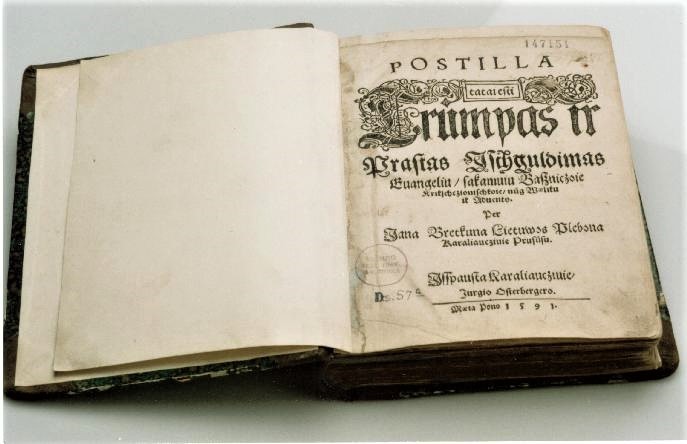 147151
POSTILLA
tatai esti
Trumpas ir
Prastas Ischguldimas
Euangeliu / sakamuiu Baßniczoie
Krikschczionischkoie / nůg
ir Aduento.
Per
Jana Bretkuna Lietuwos Plebona
Karaliaucziuie Prusůsu.
Isspausta Karaliaucziuie /
Jurgio Osterbergero.
Ds. 57
Mæta Pono 1591.